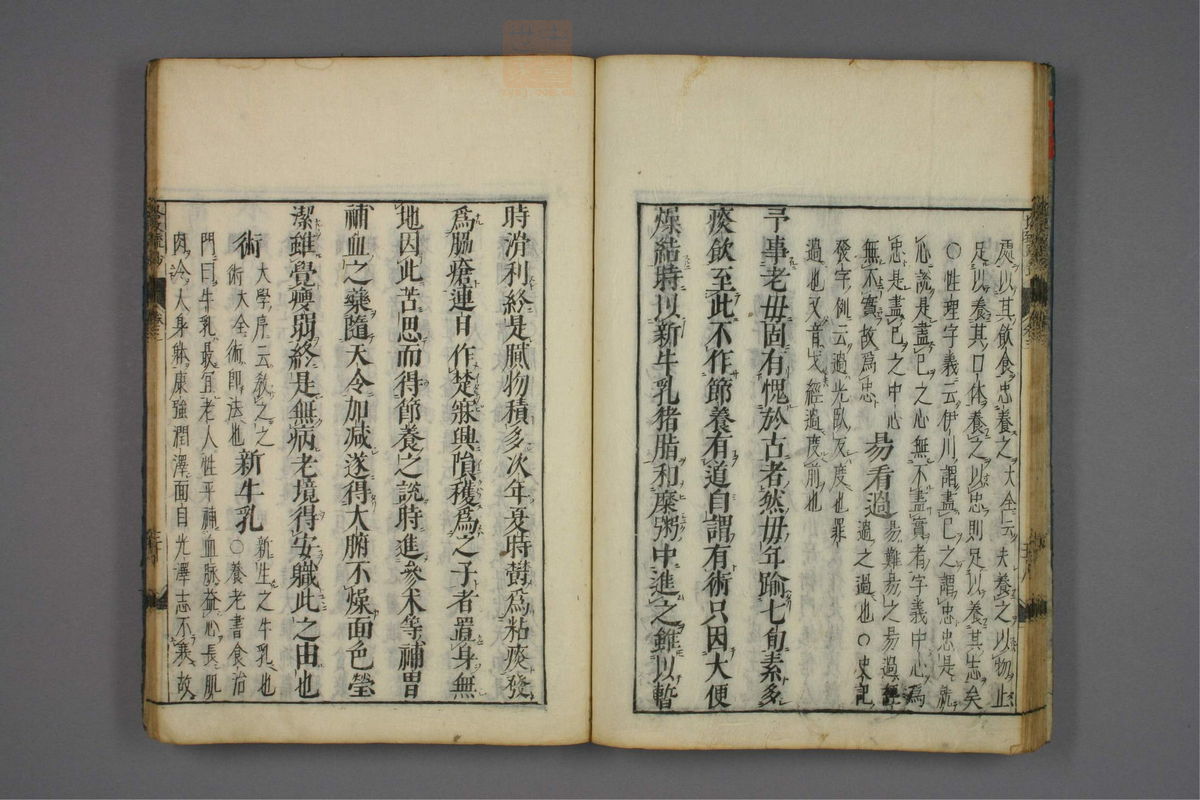 處以其飲食忠養之大全云夫養之以物止
足以養其口体養之以忠則足以養其志矣
○性理字義云伊川謂盡己之謂忠忠是就
心說是盡己之心無不盡實者字義中心爲
忠是盡己之中心
無不實故爲忠
易看過
易難易之易過經
過之過也○史記
發字例云過光臥反度也罪
過也又音戈經過度前也
予事老母固有愧於古者然母年踰七旬素多
痰飲至此不作節養有道自謂有術只因大便
燥結時以新牛乳猪脂和糜粥中進之雖以暫
時滑利終是膩物積多次年夏時欝爲粘痰發
爲脇瘡連日作楚寐興隕穫爲之子者置身無
地因此苦思而得節養之說時進參朮等補胃
補血之藥隨天令加減遂得大腑不燥面色瑩
潔雖覺瘦弱終是無病老境得安職此之由也
術
大學序云教之之
術大全術即法也
新牛乳
新生之牛乳也
○養老書食治
門曰牛乳最宜老人性平補血脉益心長肌
肉令人身躰康強潤澤面自光澤志不衰故